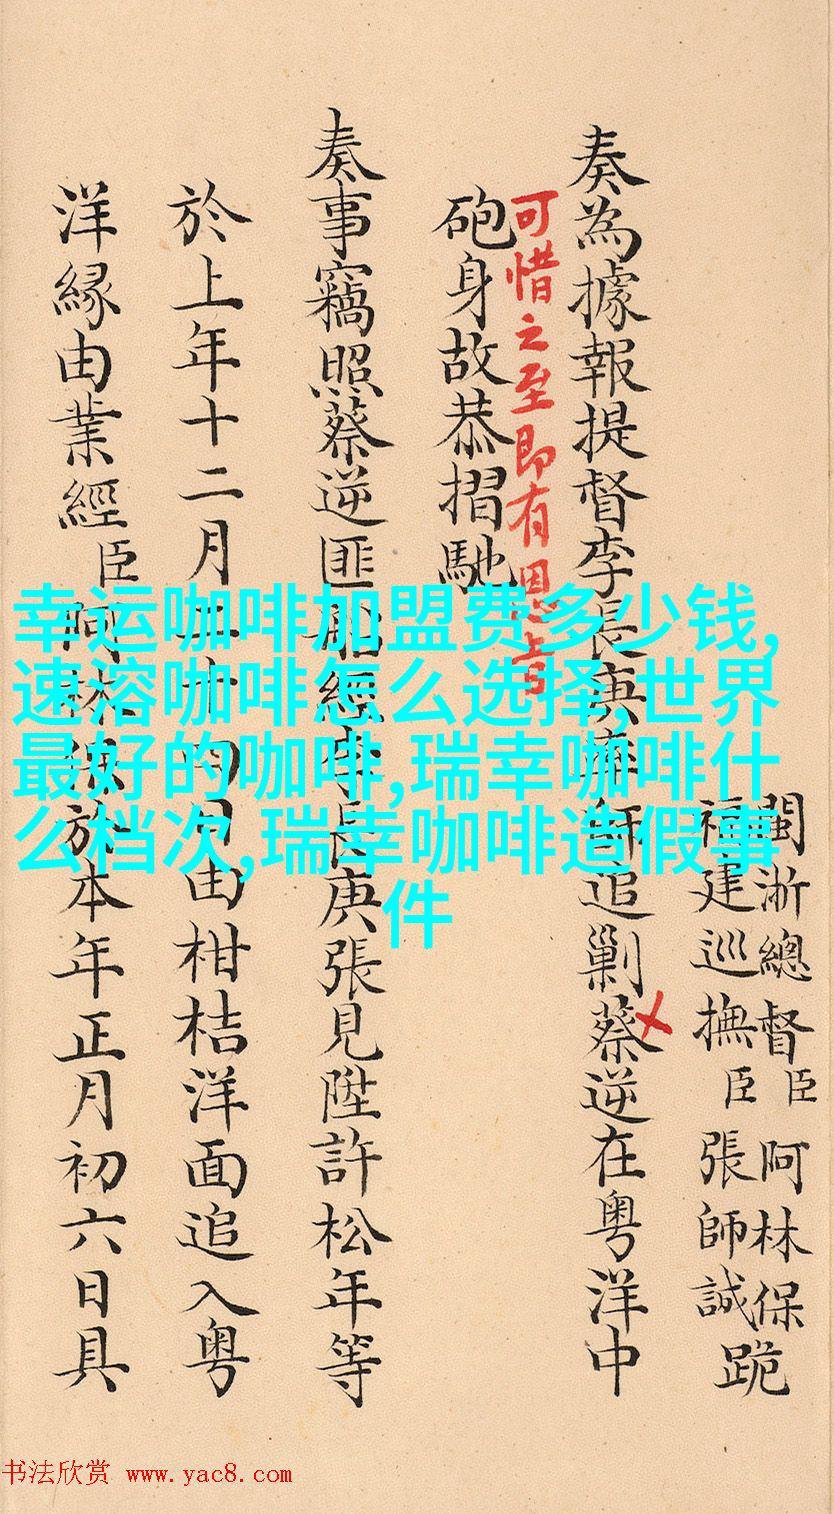 閩淅總督臣阿林保
福建巡撫臣張師誠
跪
奏為據報提督李長庚率師追剿蔡逆在粵洋中
可惜之至即有恩旨
砲身故恭摺馳
奏事竊照蔡逆匪船經李長庚張見陞許松年等
於上年十二月二十四日由柑桔洋面追入粵
洋緣由業經臣阿林保於本年正月初六日具
幸运咖啡加盟费多少钱,
速溶咖啡怎么选择,世界
最好的咖啡,瑞幸咖啡什
么档次,瑞幸咖啡造假事
件
书法欣赏 www.yac8.com